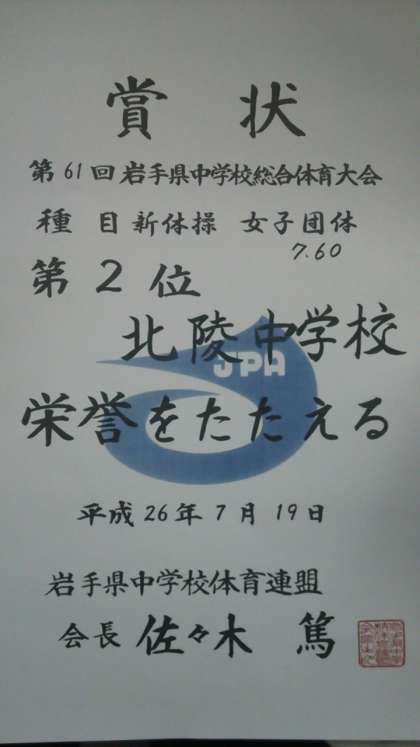 賞状
第61回岩手県中学校総合体育大会
種目新体操 女子団体
7.60
第2位
北陵中学校
JPA
栄誉をたたえる
平成26年7月19日
岩手県中学校体育連盟
会長 佐々木 篤